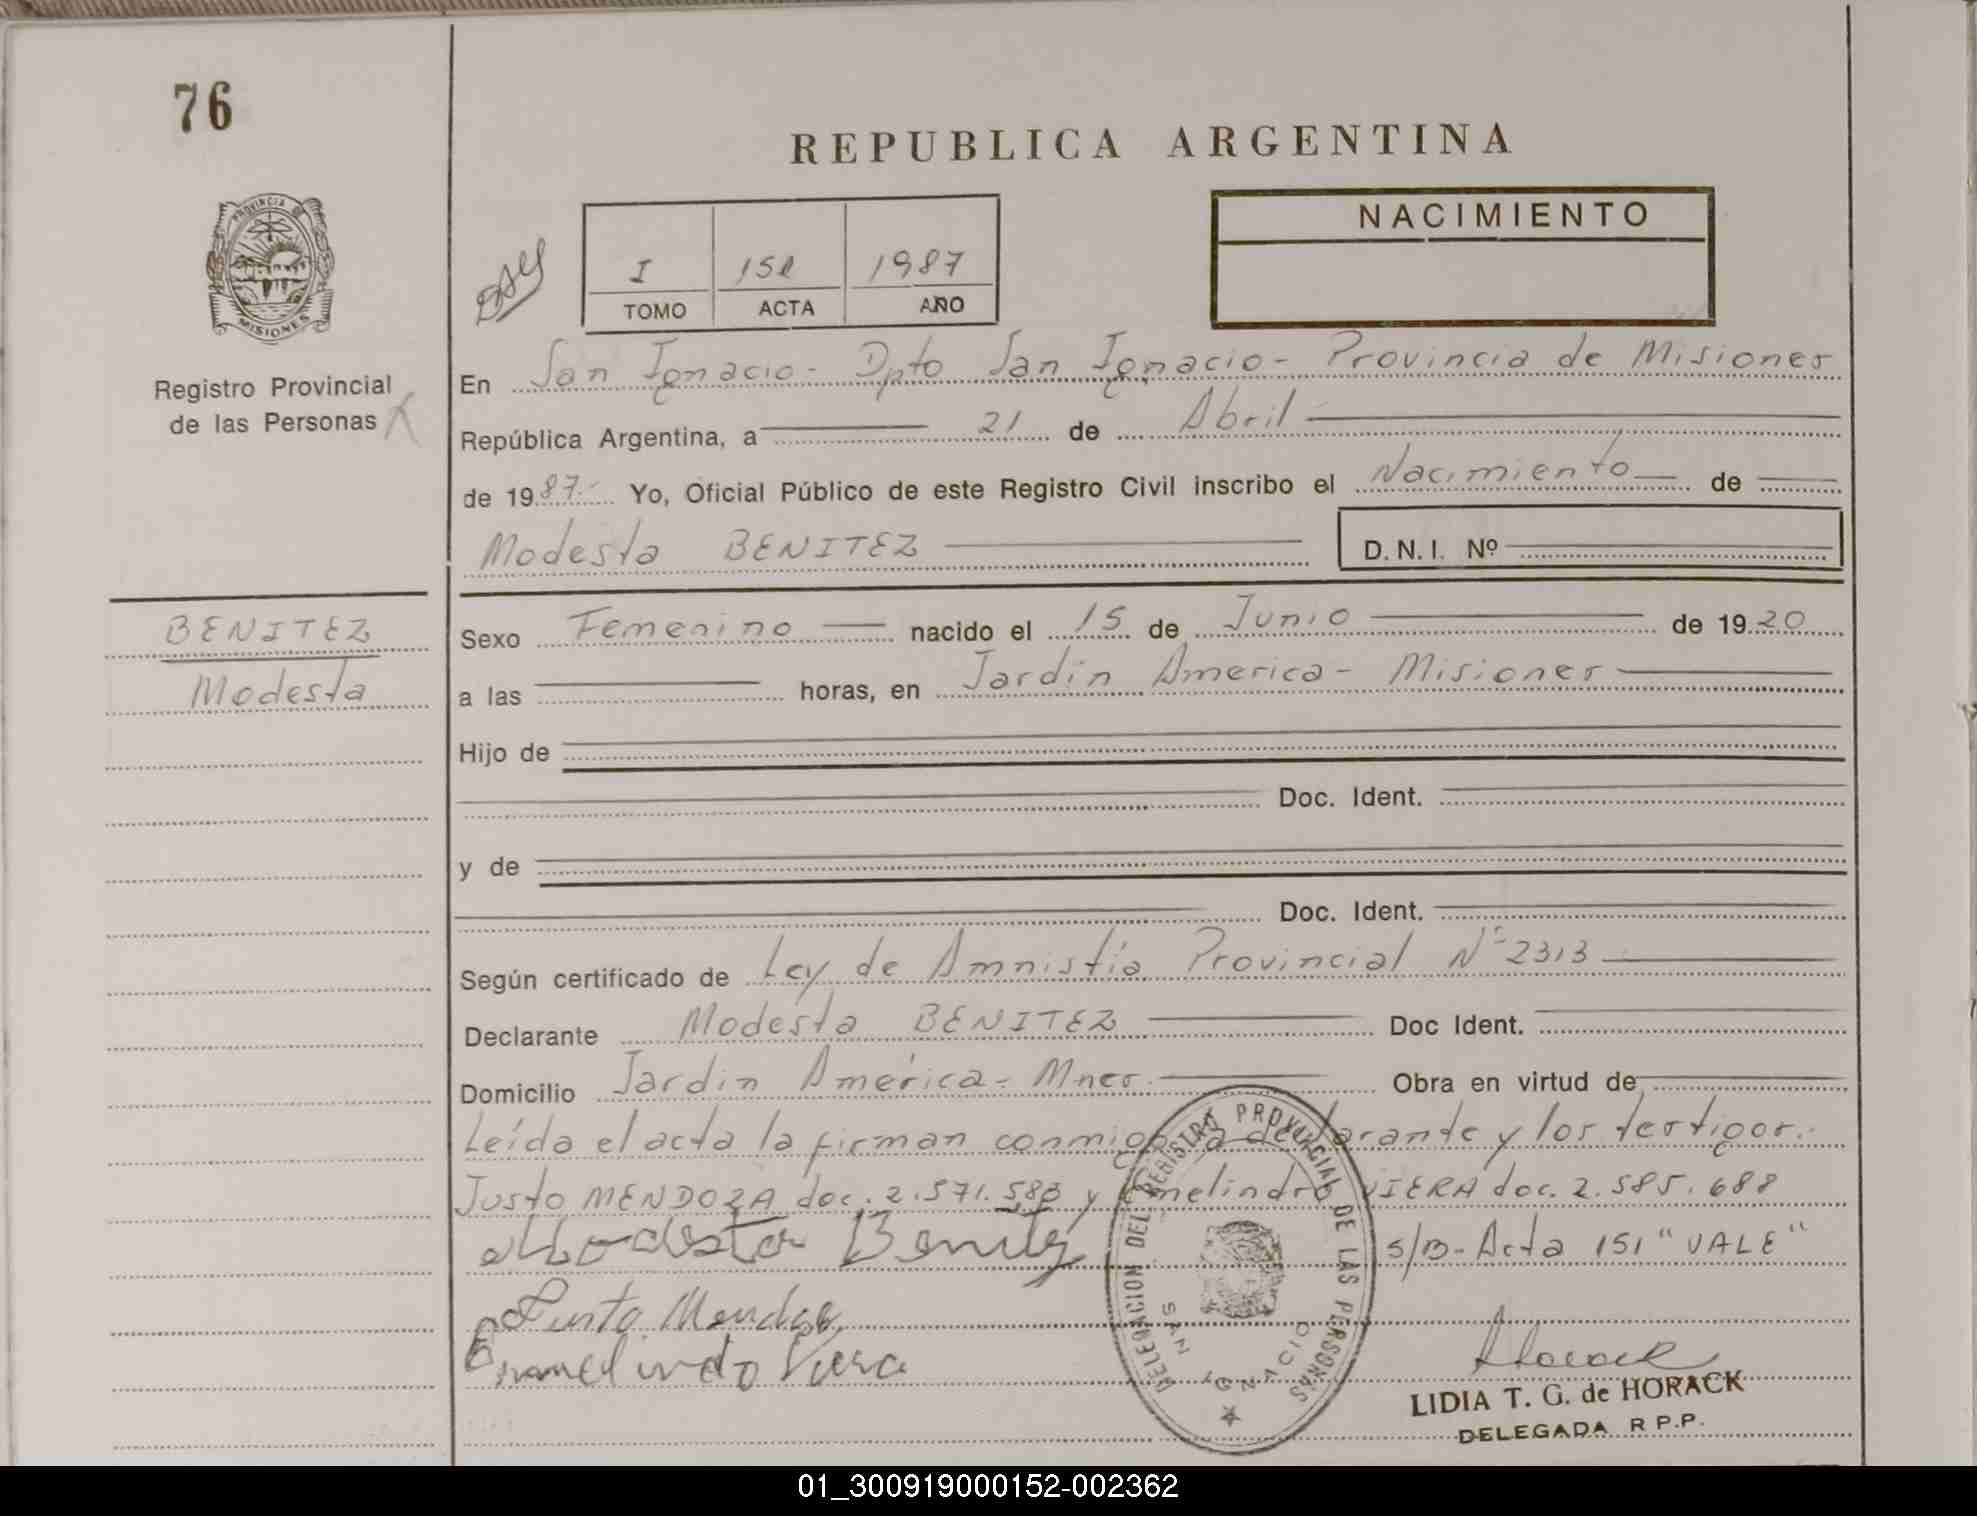 76
REPUBLICA ARGENTINA
PROVINCIA DE
MISIONES
Registro Provincial
de las Personas
I 151 1987
TOMO ACTA AÑO
NACIMIENTO
En San Ignacio - Dpto San Ignacio - Provincia de Misiones
República Argentina, a 21 de Abril
de 1987.- Yo, Oficial Público de este Registro Civil inscribo el Nacimiento de
Modesta BENITEZ D.N.I. Nº
BENITEZ
Modesta
Sexo Femenino nacido el 15 de Junio de 1920
a las horas, en Jardin America - Misiones
Hijo de
Doc. Ident.
y de
Doc. Ident.
Según certificado de Ley de Amnistía Provincial Nº 2313
Declarante Modesta BENITEZ Doc Ident.
Domicilio Jardin América - Mnes. Obra en virtud de
Leída el acta la firman conmigo la declarante y los testigos.
Justo MENDOZA doc. 2.571.583 y Emelindro VIERA doc. 2.585.688
Modesta Benitez S/B - Acta 151 "VALE"
Justo Mendoza
Viera
Horack
LIDIA T. G. de HORACK
DELEGADA R P.P.
DELEGACION DEL REGISTRO PROVINCIAL DE LAS PERSONAS
SAN IGNACIO
01_300919000152-002362